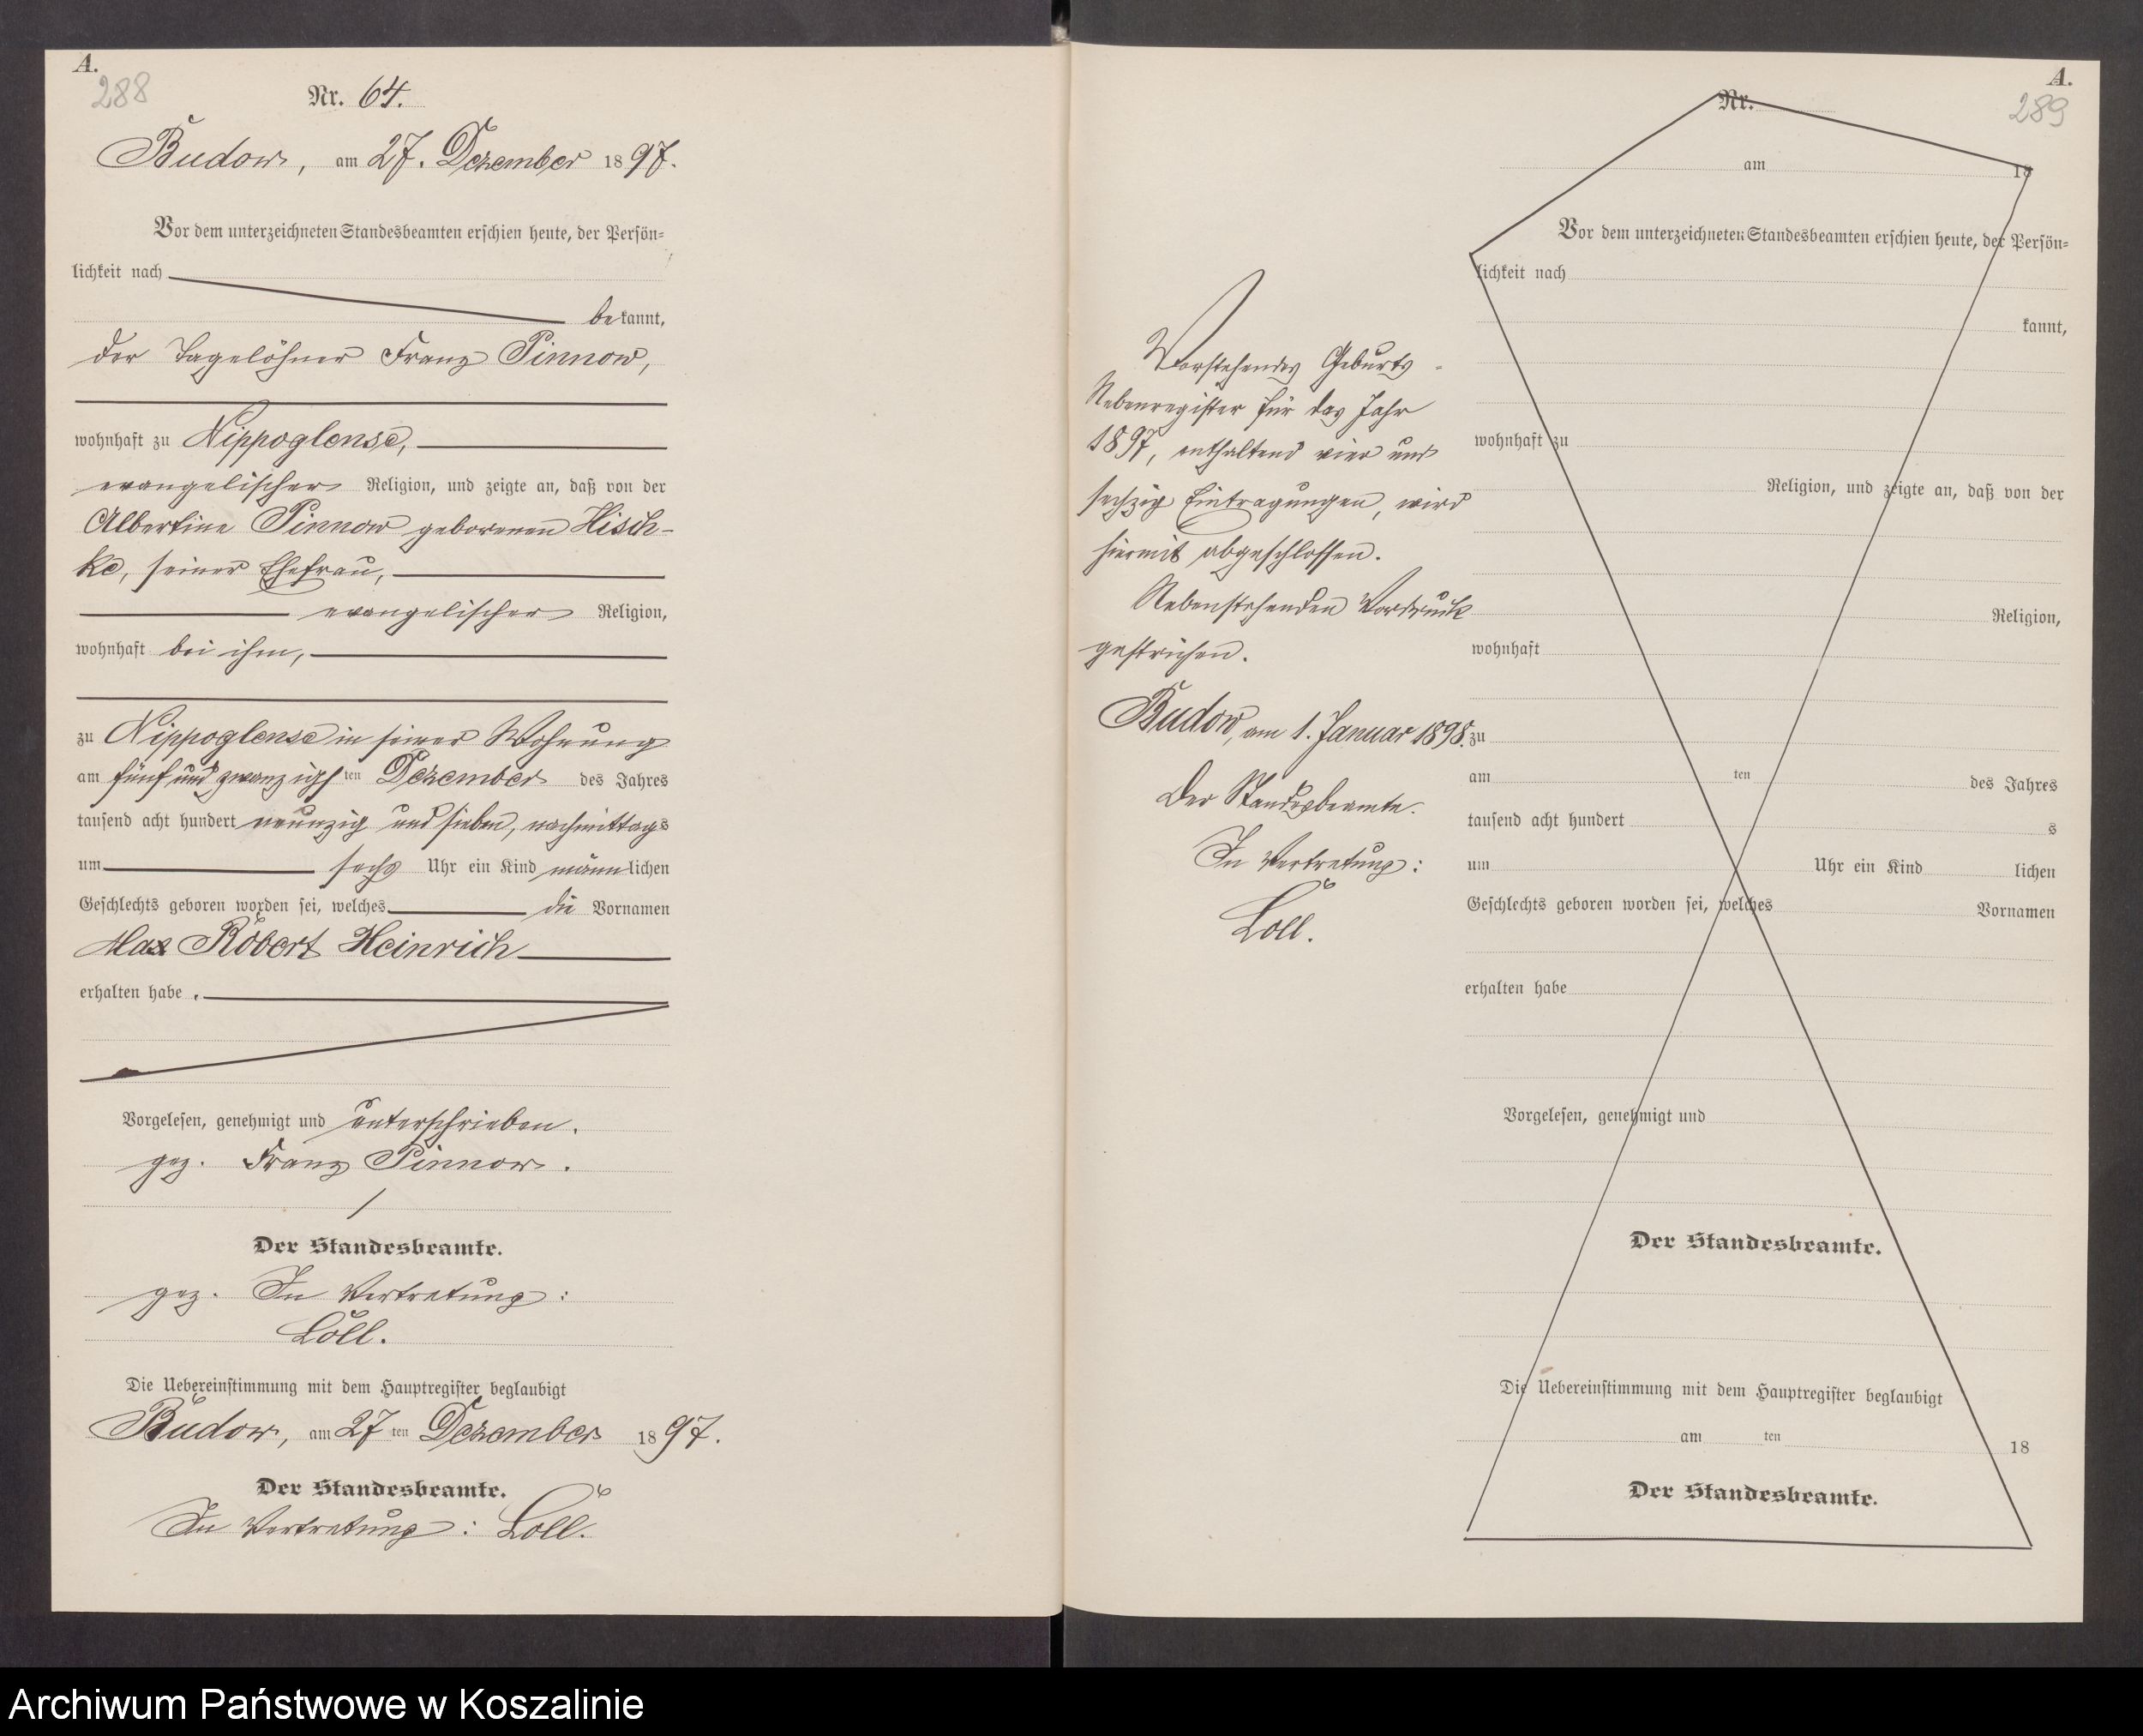 A.
288
Nr. 64.
Budow, am 27. Dezember 1897.
Vor dem unterzeichneten Standesbeamten erschien heute, der Persön-
lichkeit nach
bekannt,
der Tagelöhner Franz Pinnow,
wohnhaft zu Nippoglense,
evangelischer Religion, und zeigte an, daß von der
Albertine Pinnow geborenen Hisch-
ke, seiner Ehefrau,
evangelischer Religion,
wohnhaft bei ihm,
zu Nippoglense in seiner Wohnung
am fünf und zwanzigsten Dezember des Jahres
tausend acht hundert neunzig und sieben, nachmittags
um sechs Uhr ein Kind männlichen
Geschlechts geboren worden sei, welches die Vornamen
Max Robert Heinrich
erhalten habe.
Vorgelesen, genehmigt und unterschrieben.
gez. Franz Pinnow.
Der Standesbeamte.
gez. In Vertretung:
Loll.
Die Uebereinstimmung mit dem Hauptregister beglaubigt
Budow, am 27ten Dezember 1897.
Der Standesbeamte.
In Vertretung: Loll.
Vorstehendes Geburts-
Nebenregister für das Jahr
1897, enthaltend vier und
sechzig Eintragungen, wird
hiermit abgeschlossen.
Nebenstehenden Vordruck
gestrichen.
Budow, am 1. Januar 1898.
Der Standesbeamte.
In Vertretung:
Loll.
A.
289
Nr.
am 18
Vor dem unterzeichneten Standesbeamten erschien heute, der Persön-
lichkeit nach
kannt,
wohnhaft zu
Religion, und zeigte an, daß von der
Religion,
wohnhaft
zu
am ten des Jahres
tausend acht hundert s
um Uhr ein Kind lichen
Geschlechts geboren worden sei, welches Vornamen
erhalten habe
Vorgelesen, genehmigt und
Der Standesbeamte.
Die Uebereinstimmung mit dem Hauptregister beglaubigt
am ten 18
Der Standesbeamte.
Archiwum Państwowe w Koszalinie